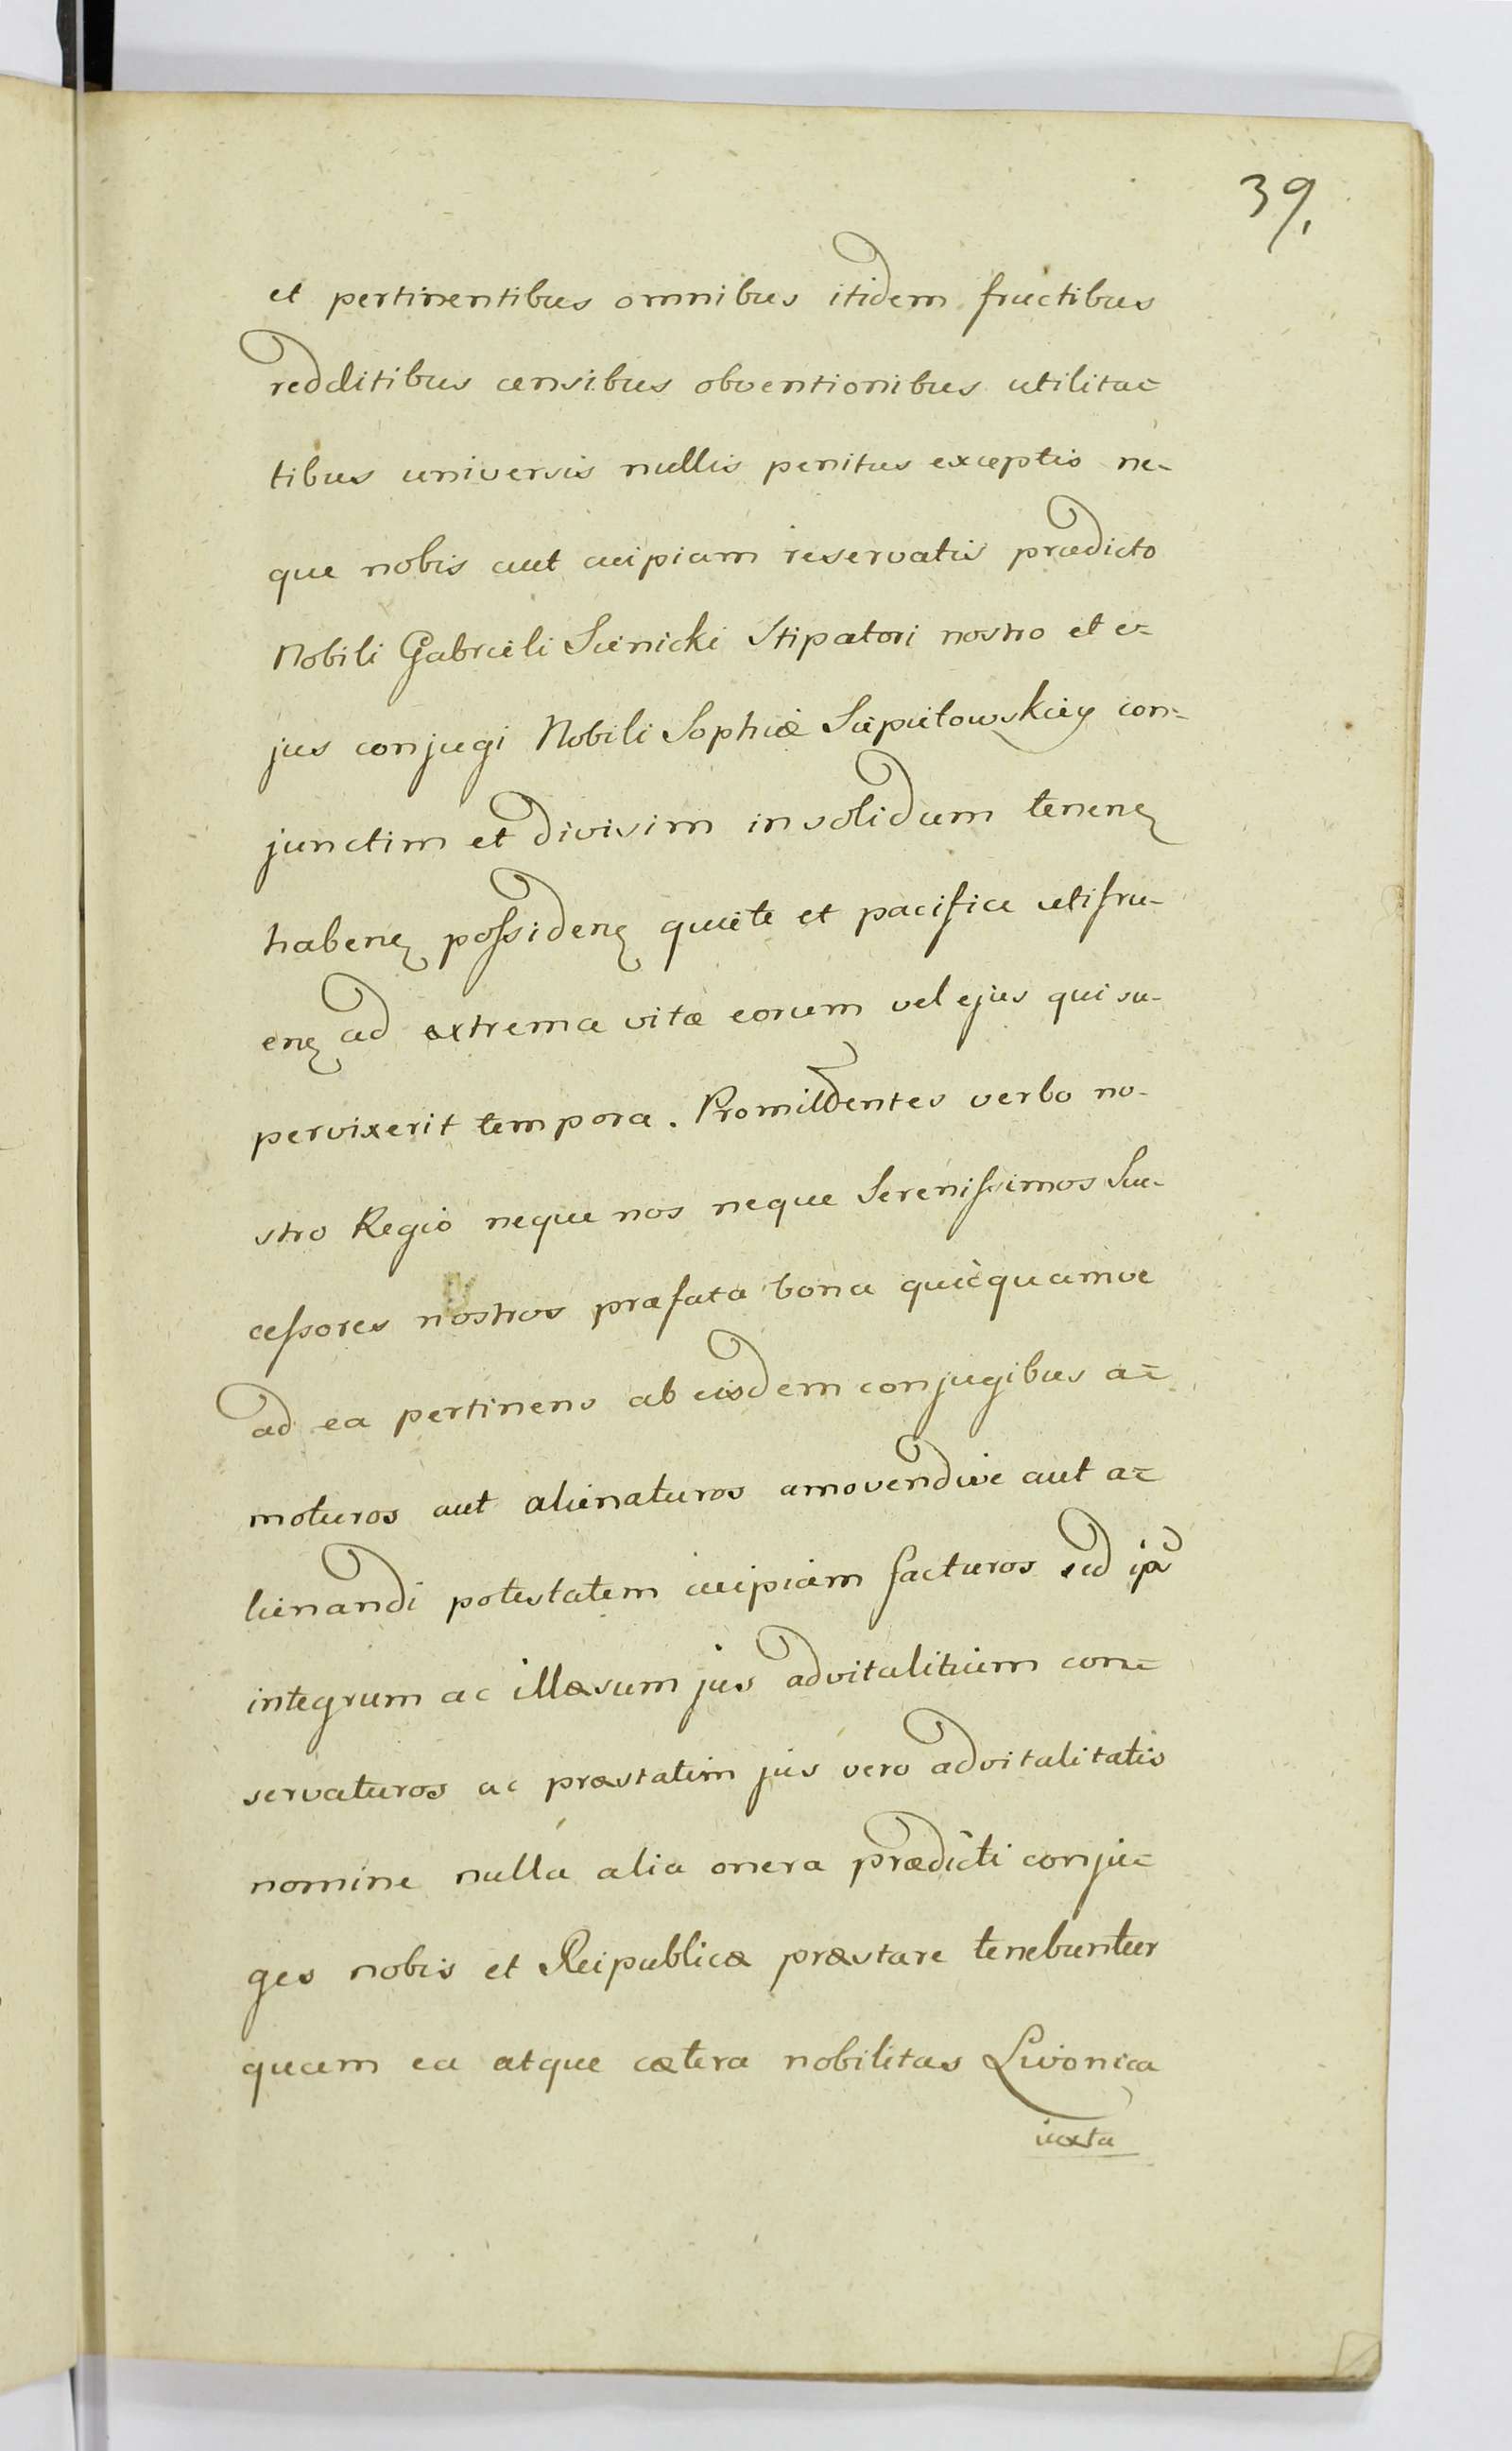 39.
et pertinentibus omnibus itidem fructibus
redditibus censibus obventionibus utilita=
tibus universis nullis penitus exceptis ne-
que nobis aut cuipiam reservatis prædicto
Nobili Gabrieli Sienicki Stipatori nostro et e=
jus conjugi Nobili Sophiæ Siepielowskiey con=
junctim et divisim in solidum tenen
haben possiden quiete et pacifice utifru-
en ad extrema vitæ eorum vel ejus qui su-
pervixerit tempora. Promittentes verbo no-
stro Regio neque nos neque Serenissimos Suc-
cessores nostros præfata bona quicquamve
ad ea pertinens ab eisdem conjugibus a=
moturos aut alienaturos amovendive aut a=
lienandi potestatem cuipiam facturos sed ipā
integrum ac illæsum jus advitalitium con=
servaturos ac præstatim jus vero advitalitatis
nomine nulla alia onera prædicti conju=
ges nobis et Reipublicæ præstare tenebuntur
quam ea atque cætera nobilitas Livonica
iuxta